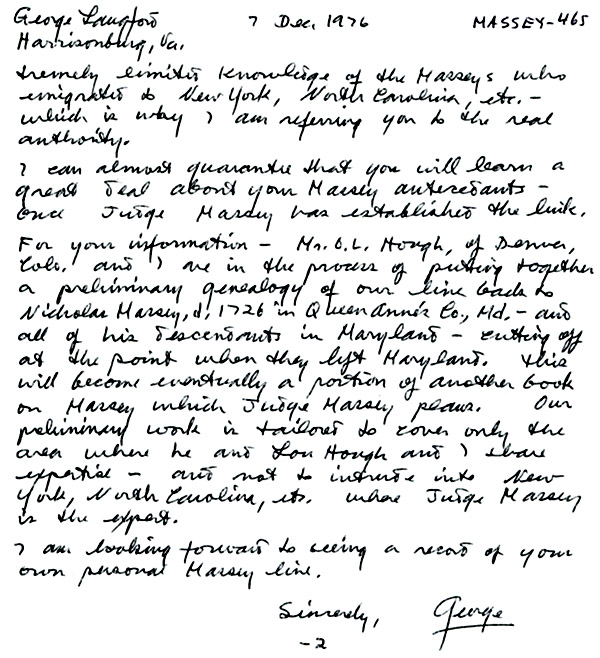 George Langford 7 Dec. 1976 MASSEY-465
Harrisonburg, Va.
tremely limited knowledge of the Masseys who
emigrated to New York, North Carolina, etc. -
which is why I am referring you to the real
authority.
I can almost guarantee that you will learn a
great deal about your Massey antecedants -
once Judge Massey has established the link.
For your information - Mr. O.L. Hough, of Denver,
Colo. and I are in the process of putting together
a preliminary genealogy of our line back to
Nicholas Massey, d. 1726 in Queen Anne's Co., Md. - and
all of his descendants in Maryland - cutting off
at the point when they left Maryland. This
will become eventually a portion of another book
on Massey which Judge Massey plans. Our
preliminary work is tailored to cover only the
area where he and Lou Hough and I share
expertise - and not to intrude into New
York, North Carolina, etc. where Judge Massey
is the expert.
I am looking forward to seeing a record of your
own personal Massey line.
Sincerely, George
-2